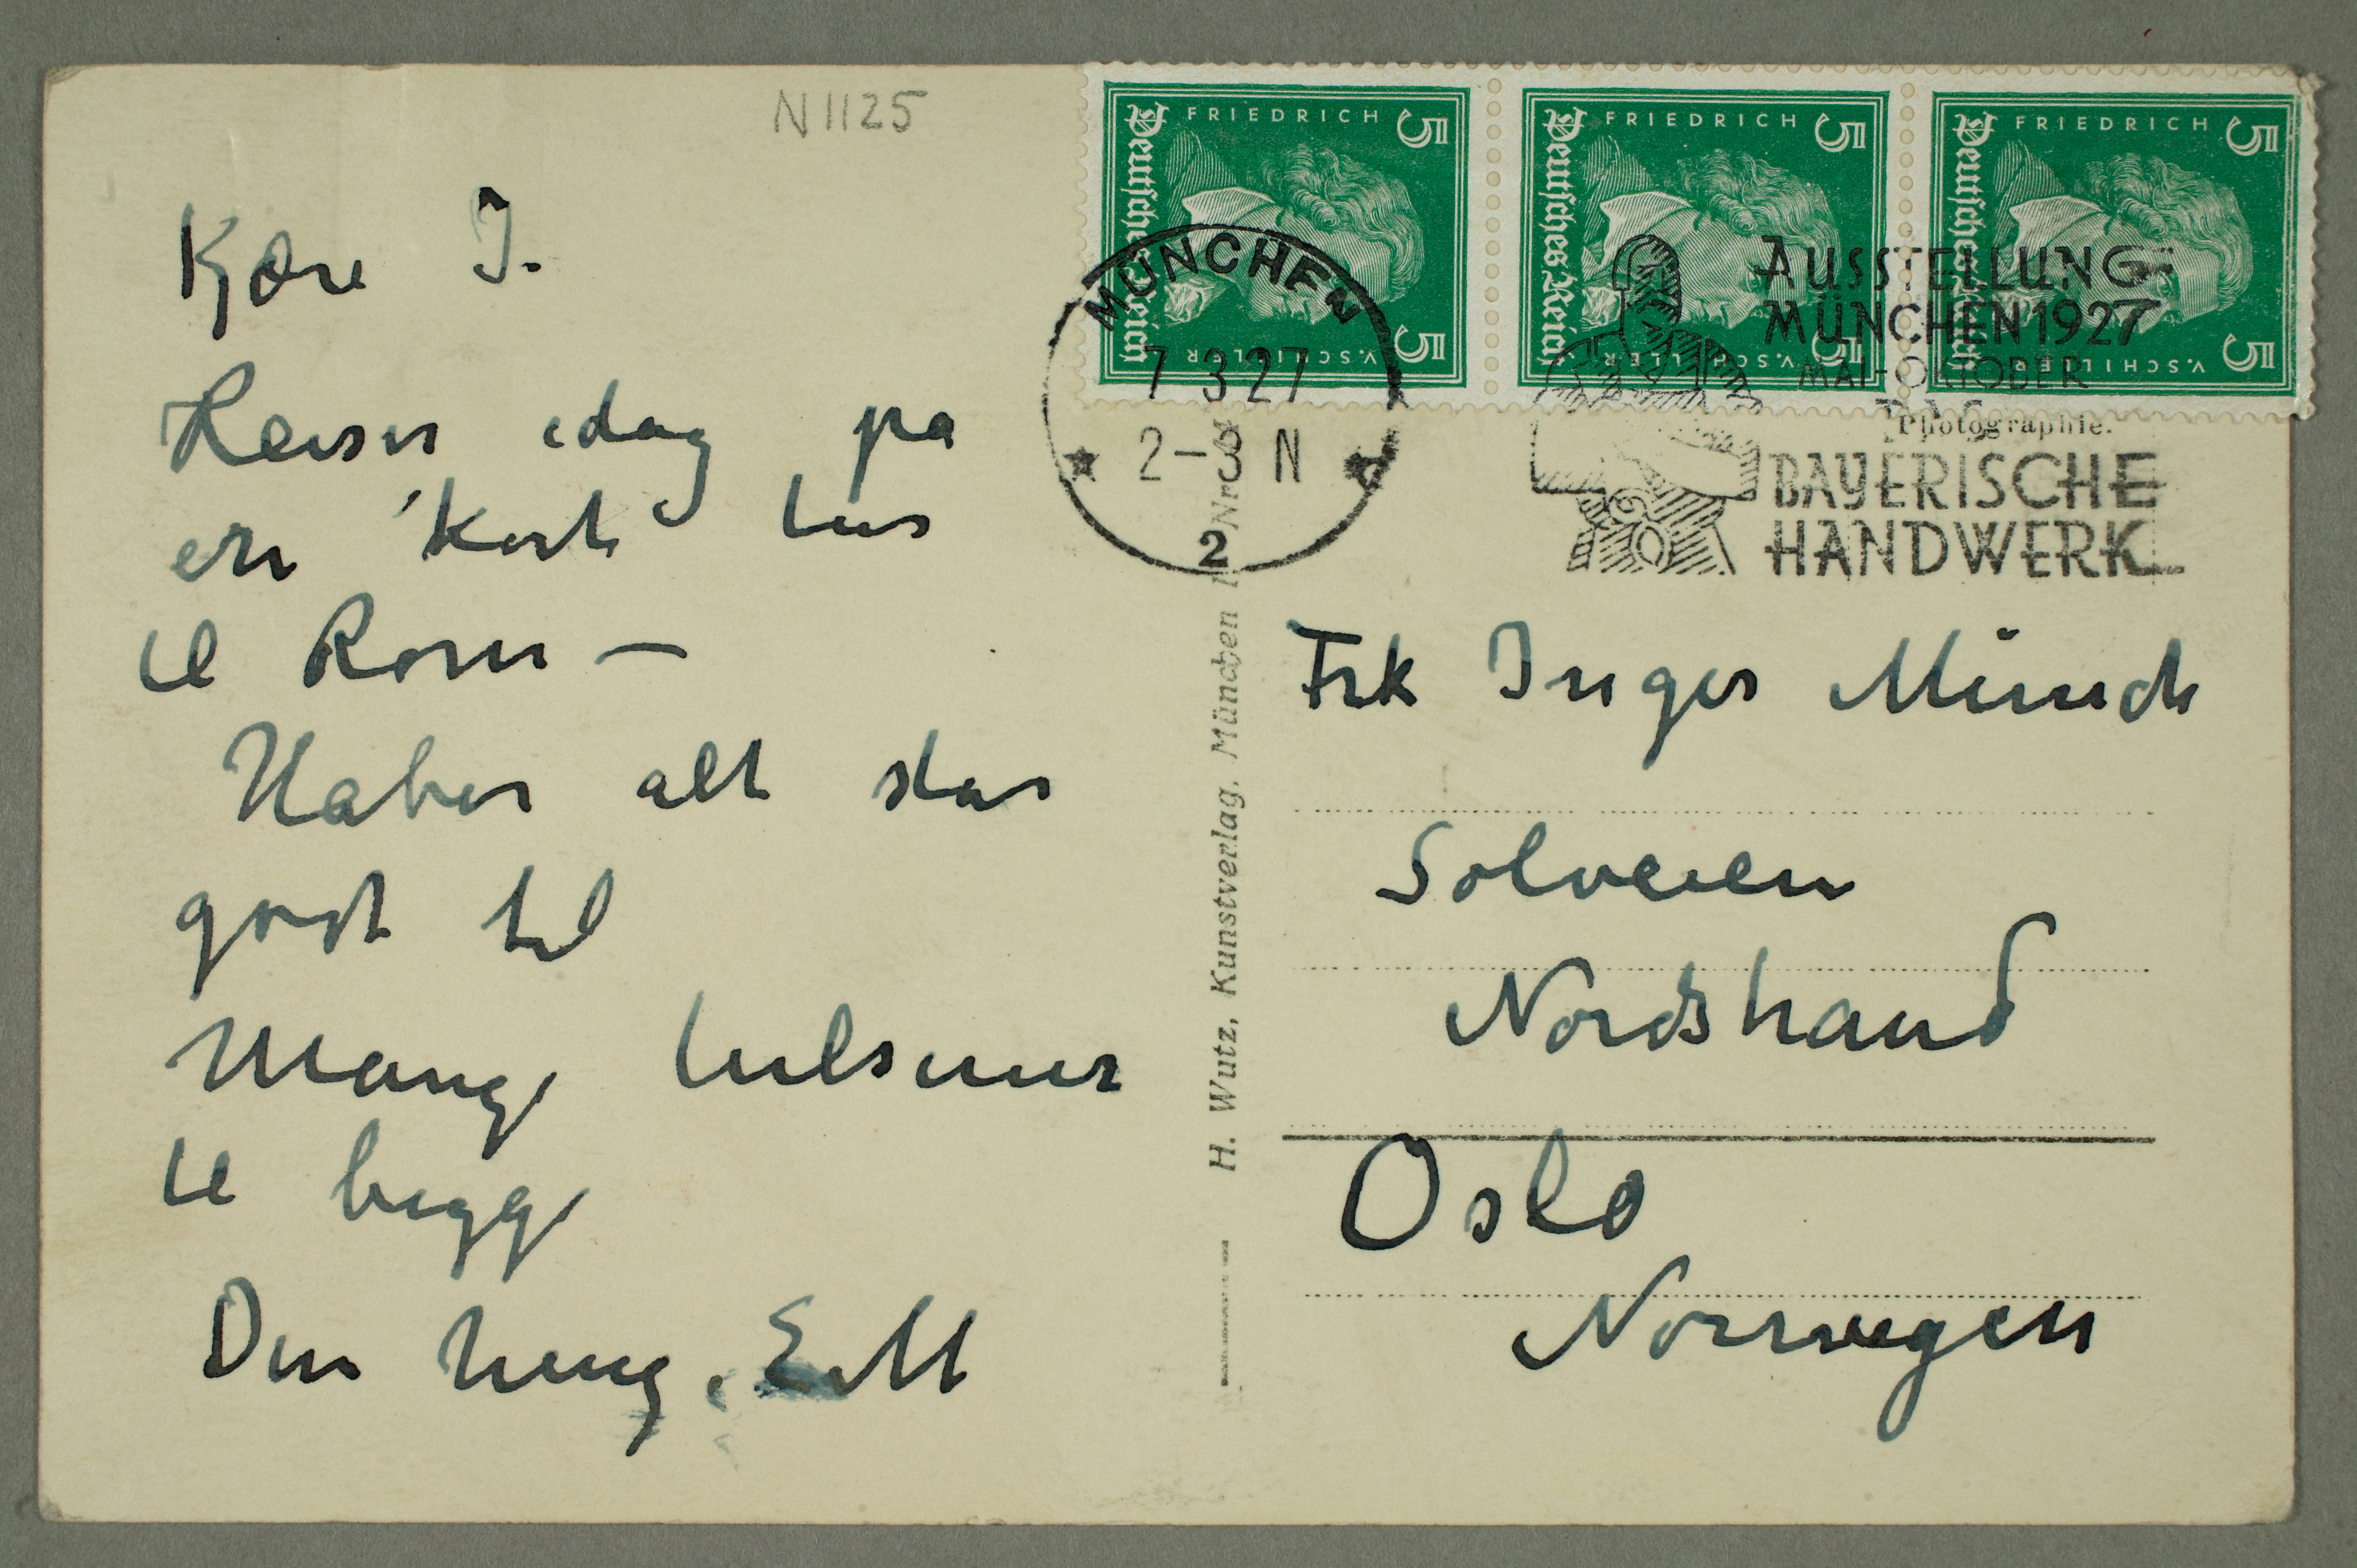 N 1125
Kjære I.
Reiser idag på
en kort tur
til Rom —
Haber alt står
godt til
Mange hilsener
til begge
Din heng. E M
FRIEDRICH
V. SCHILLER
Deutsches Reich
5
5
FRIEDRICH
V. SCHILLER
Deutsches Reich
5
5
FRIEDRICH
V. SCHILLER
Deutsches Reich
5
5
MÜNCHEN
7 3 27
2-3 N
2
AUSSTELLUNG
MÜNCHEN 1927
MAI-OKTOBER
DAS
BAYERISCHE
HANDWERK
Photographie.
H. Wutz, Kunstverlag, München Nr.
Frk Inger Munch
Solveien
Nordstrand
Oslo
Norwegen